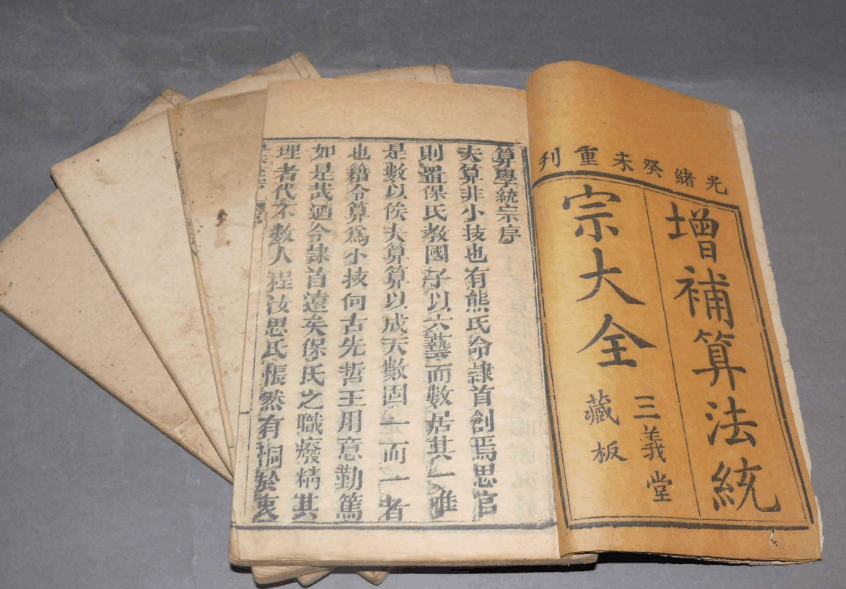 光緒癸未重刊
增補算法統
宗大全
三義堂
藏板
算學統宗序
夫算非小技也有熊氏命隸首創焉思官
則置保氏教國子以六藝而數居其一唯
是數以俟大算算以成天數固一而一者
也藉令算為小技何古先哲王用意勤篤
如是哉迺令隸首遠矣保氏之職癈精其
理者代不數人程汝思氏悵然有桐於衷